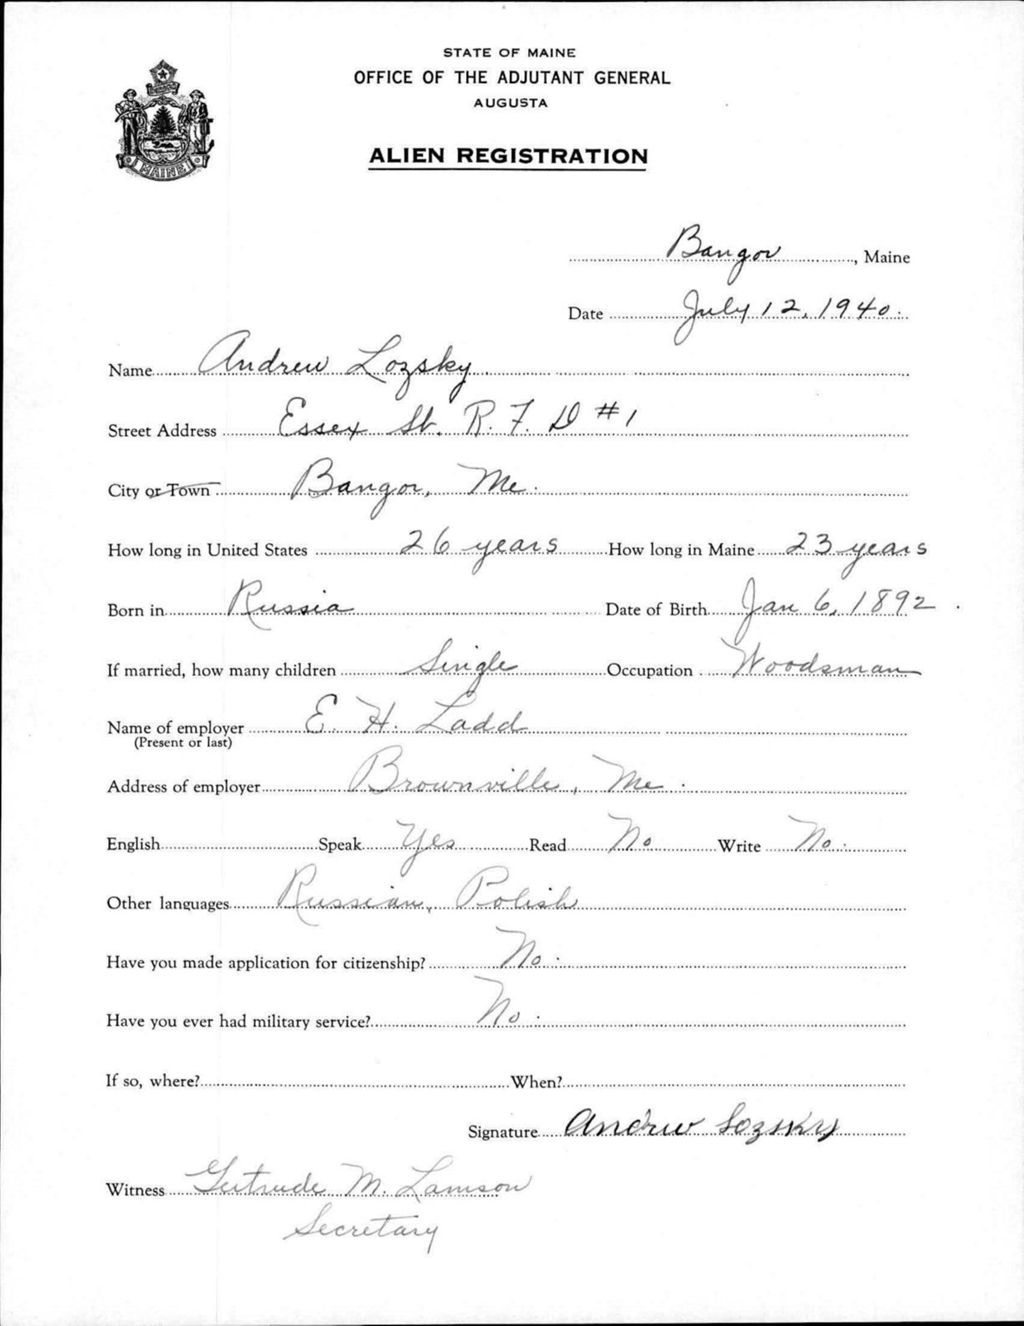 STATE OF MAINE
OFFICE OF THE ADJUTANT GENERAL
AUGUSTA
ALIEN REGISTRATION
MAINE
Bangor, Maine
Date July 12, 1940.
Name Andrew Lozsky.
Street Address Essex St. R. F. D #1
City or Town Bangor, Me.
How long in United States 26 years How long in Maine 23 years
Born in Russia Date of Birth Jan 6, 1892.
If married, how many children Single Occupation Woodsman
Name of employer E. H. Ladd
(Present or last)
Address of employer Brownville, Me.
English Speak Yes Read No Write No.
Other languages Russian, Polish
Have you made application for citizenship? No.
Have you ever had military service? No.
If so, where? When?
Signature Andrew Lozsky
Witness Gertrude M. Lamson
Secretary